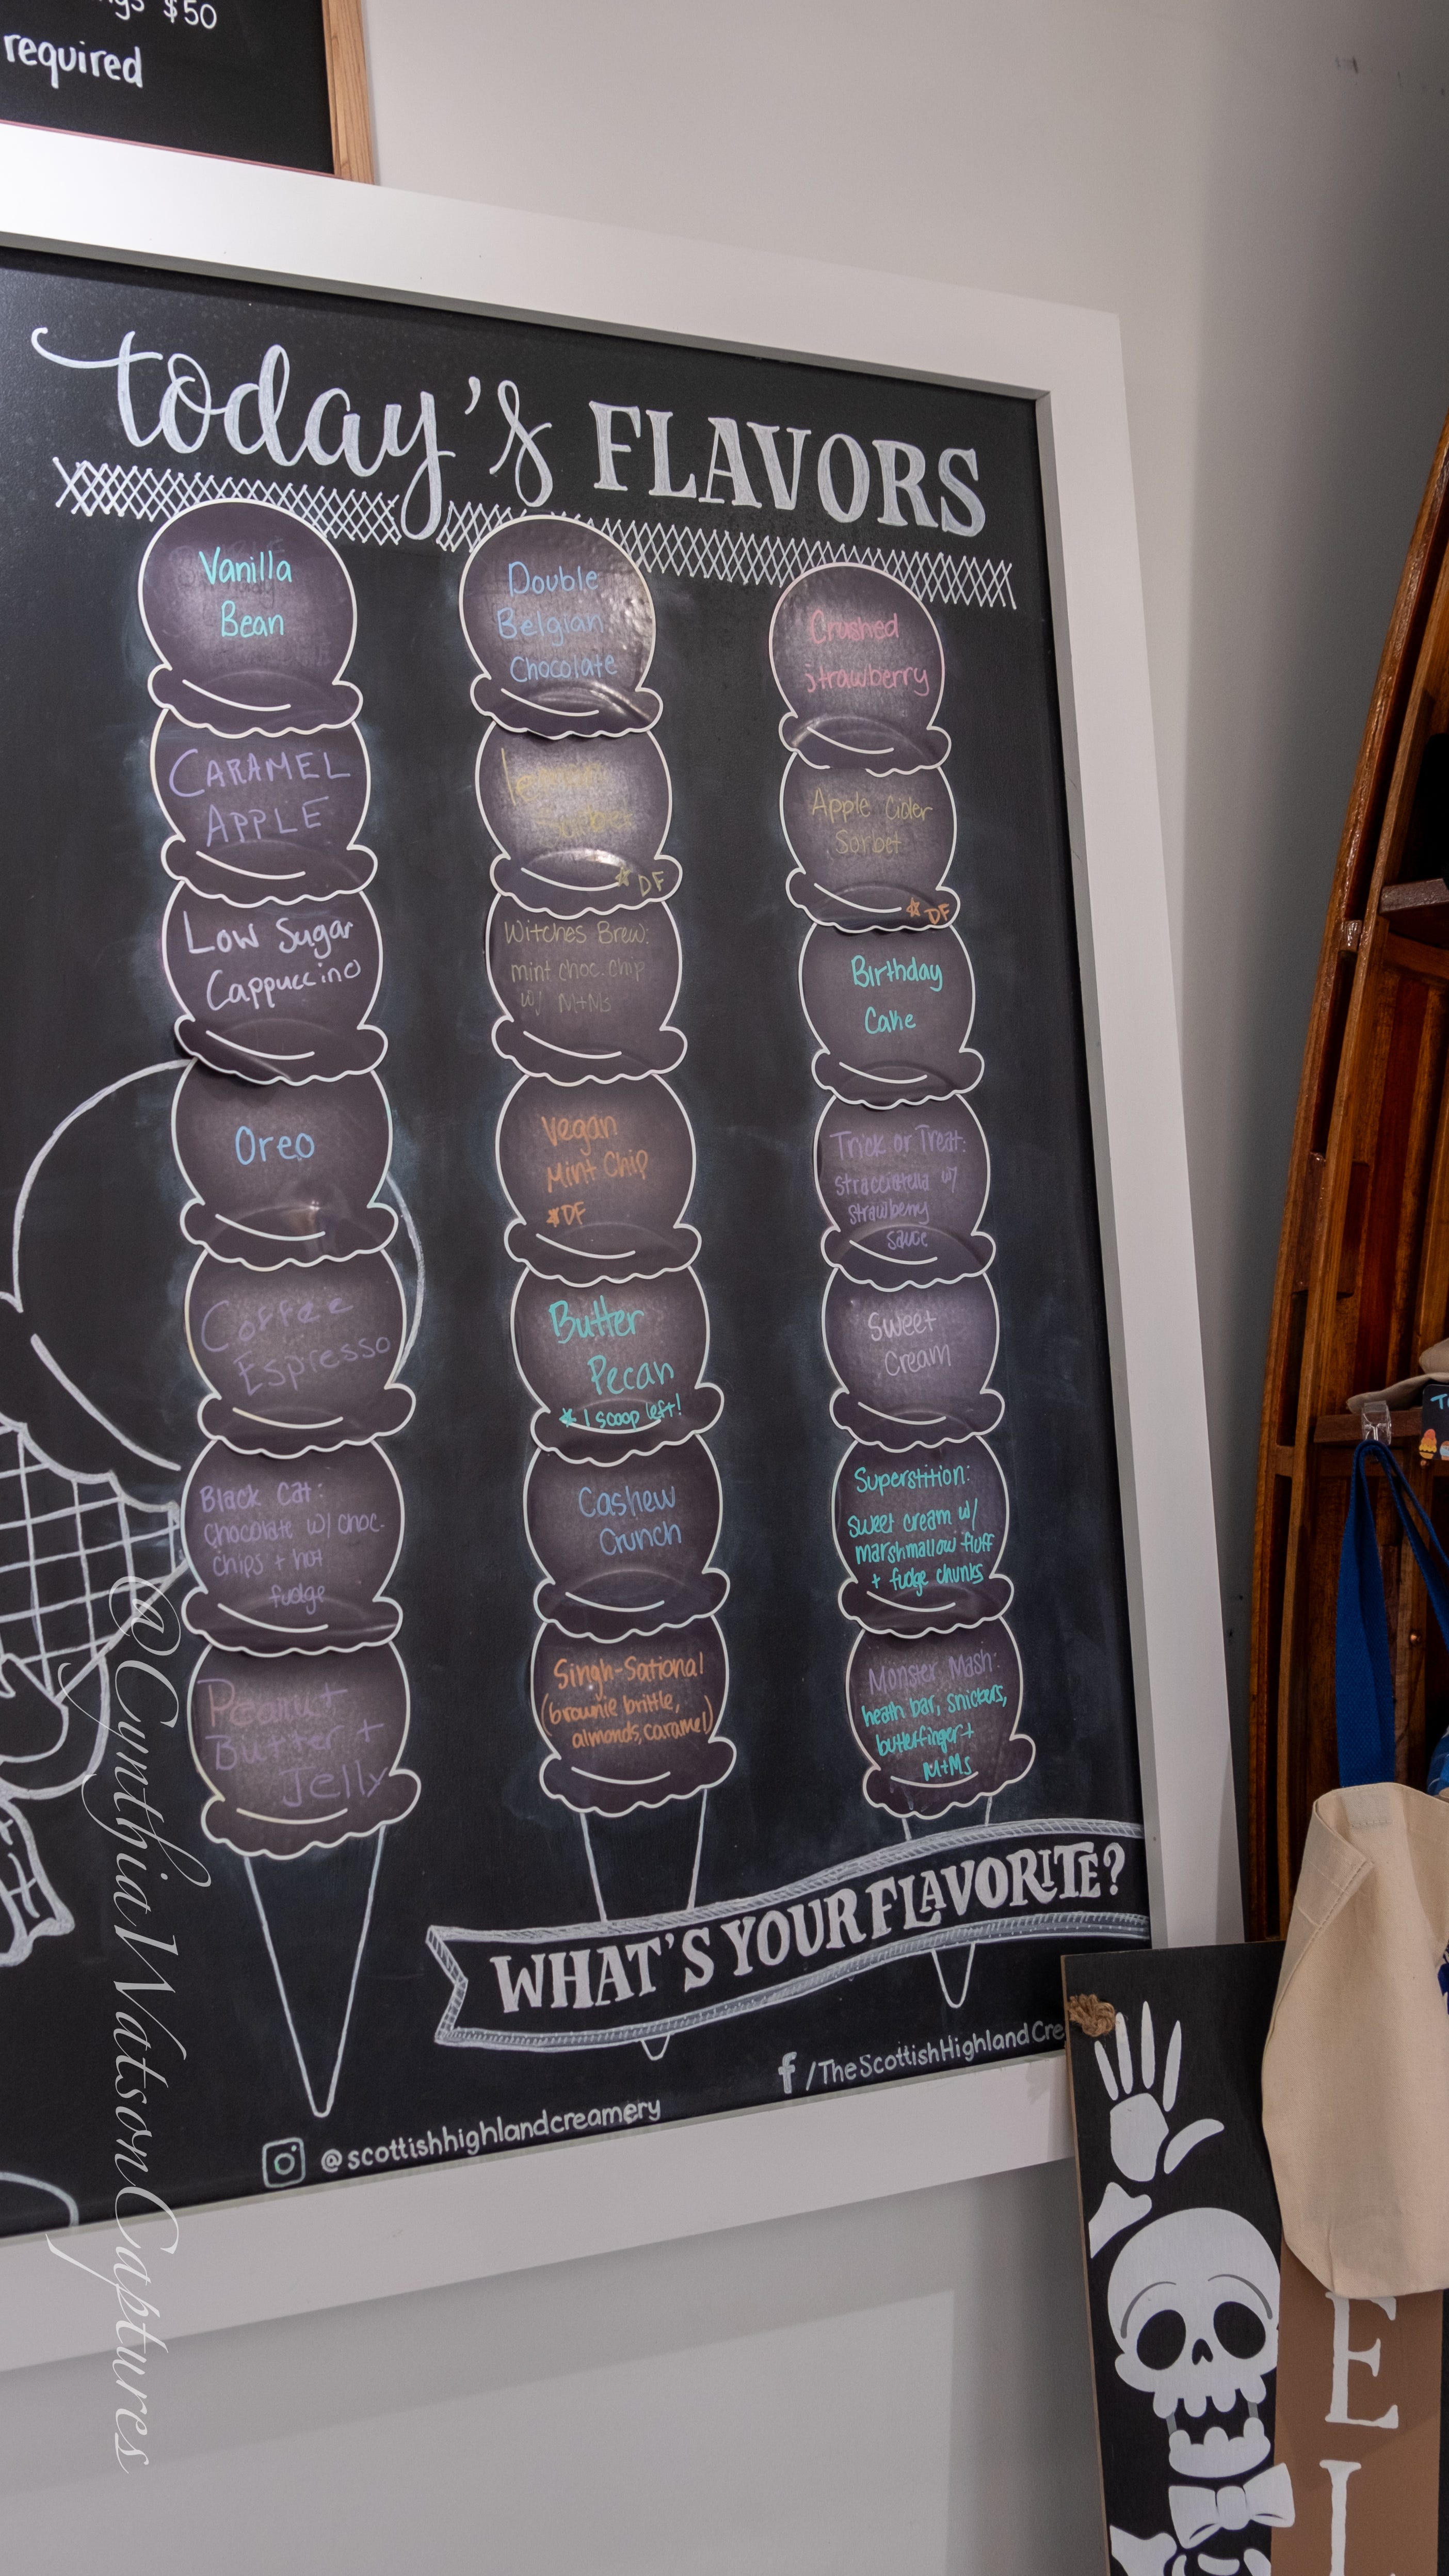 $50
required
today's FLAVORS
Vanilla
Bean
CARAMEL
APPLE
Low Sugar
Cappuccino
Oreo
Coffee
Espresso
Black Cat:
Chocolate w/ choc.
chips + hot
fudge
Peanut
Butter +
Jelly
Double
Belgian
Chocolate
lemon
DF
Witches Brew:
mint choc. chip
w/ M+Ms
Vegan
Mint Chip
DF
Butter
Pecan
1 scoop left!
Cashew
Crunch
Singh-Sational
(brownie brittle,
almonds, caramel)
Crushed
Strawberry
Apple Cider
Sorbet
DF
Birthday
Cake
Trick or Treat:
stracciatella w/
strawberry
sauce
Sweet
Cream
Superstition:
sweet cream w/
marshmallow fluff
+ fudge chunks
Monster Mash:
heath bar, snickers,
butterfinger +
M+Ms
WHAT'S YOUR FLAVORITE?
@scottishhighlandcreamery
f /TheScottishHighlandCre
E
L
@CynthiaWatsonCaptures